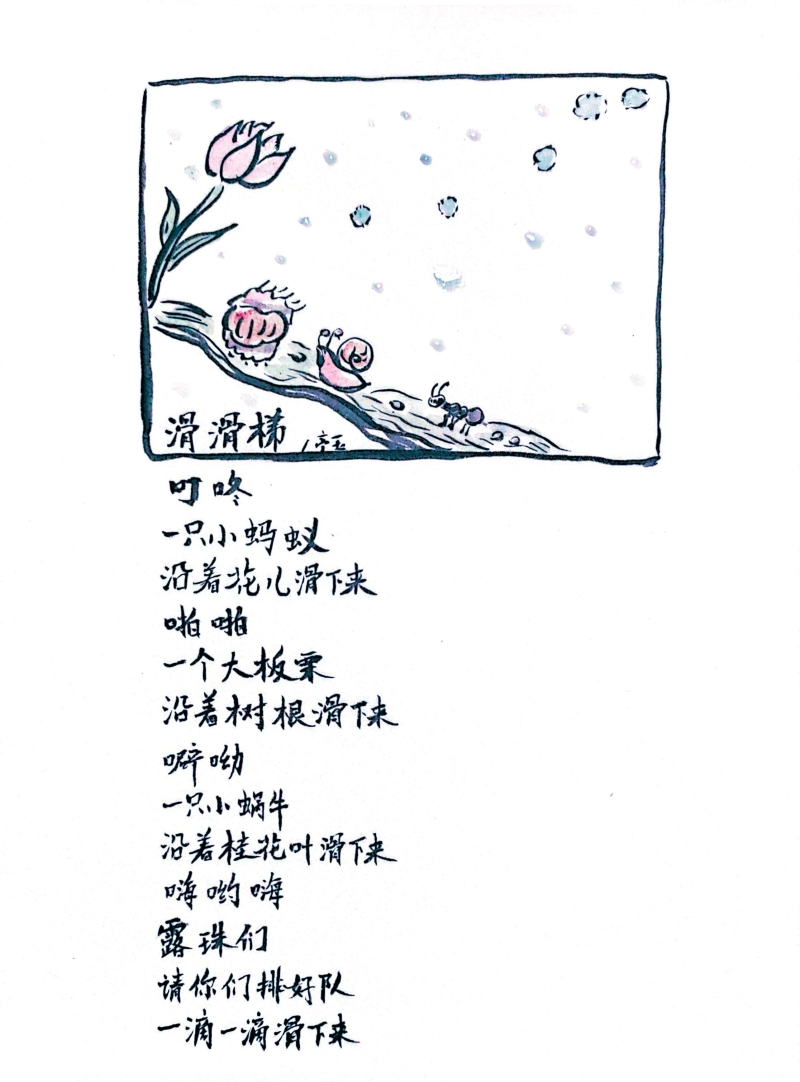 滑滑梯
叮咚
一只小蚂蚁
沿着花儿滑下来
啪啪
一个大板栗
沿着树根滑下来
噼呦
一只小蜗牛
沿着桂花叶滑下来
嗨哟嗨
露珠们
请你们排好队
一滴一滴滑下来